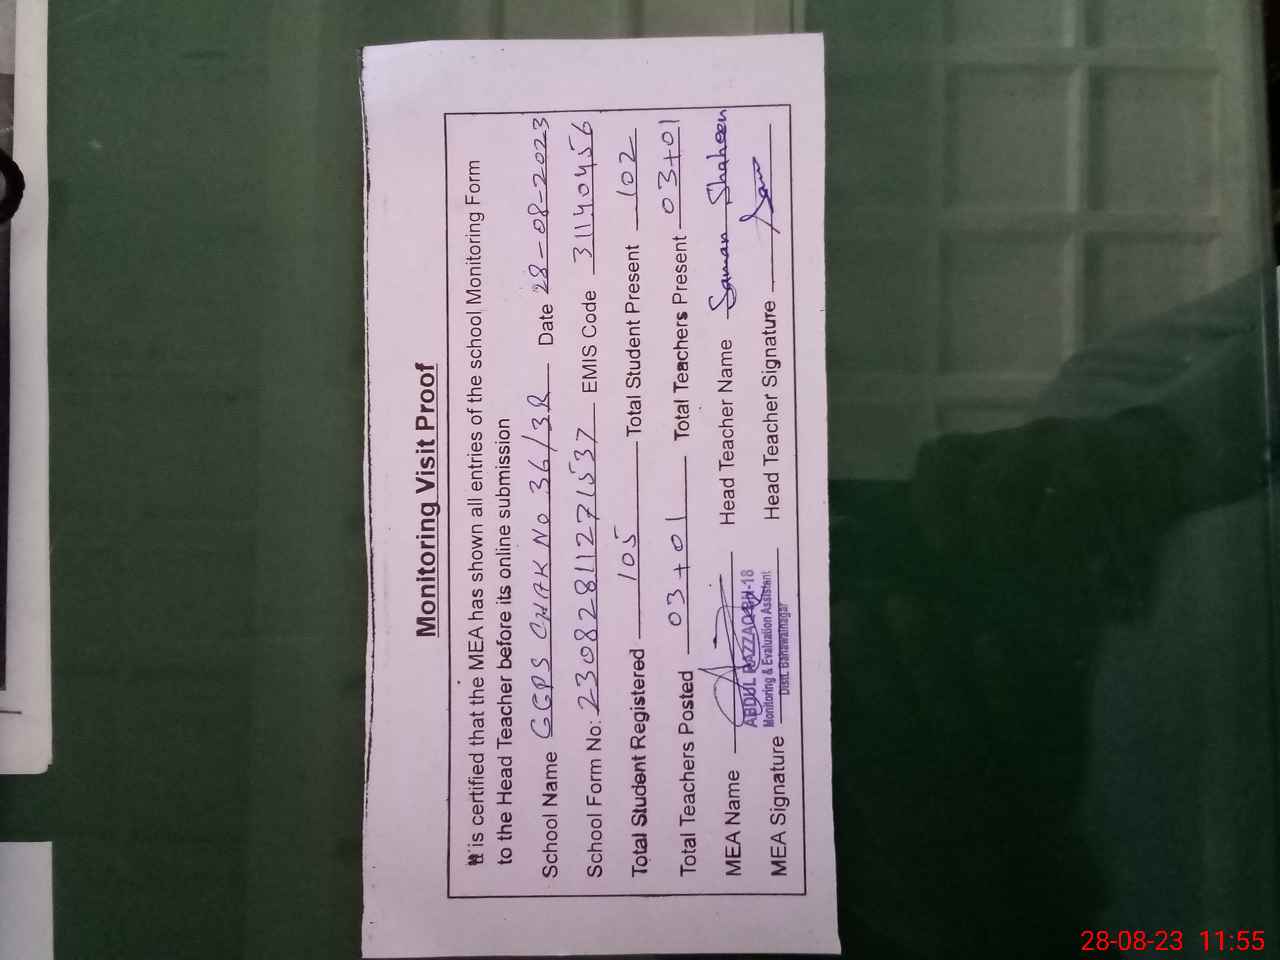 Monitoring Visit Proof
It is certified that the MEA has shown all entries of the school Monitoring Form
to the Head Teacher before its online submission
School Name GGPS CHAK No 36/3R Date 28-08-2023
School Form No: 230828112271537 EMIS Code 31140456
Total Student Registered 105 Total Student Present 102
Total Teachers Posted 03+01 Total Teachers Present 03+01
MEA Name Head Teacher Name Saman Shaheen
ABDUL RAZZAQ -18
Monitoring & Evaluation Assistant
Distt. Bahawalnagar
MEA Signature Head Teacher Signature
28-08-23 11:55